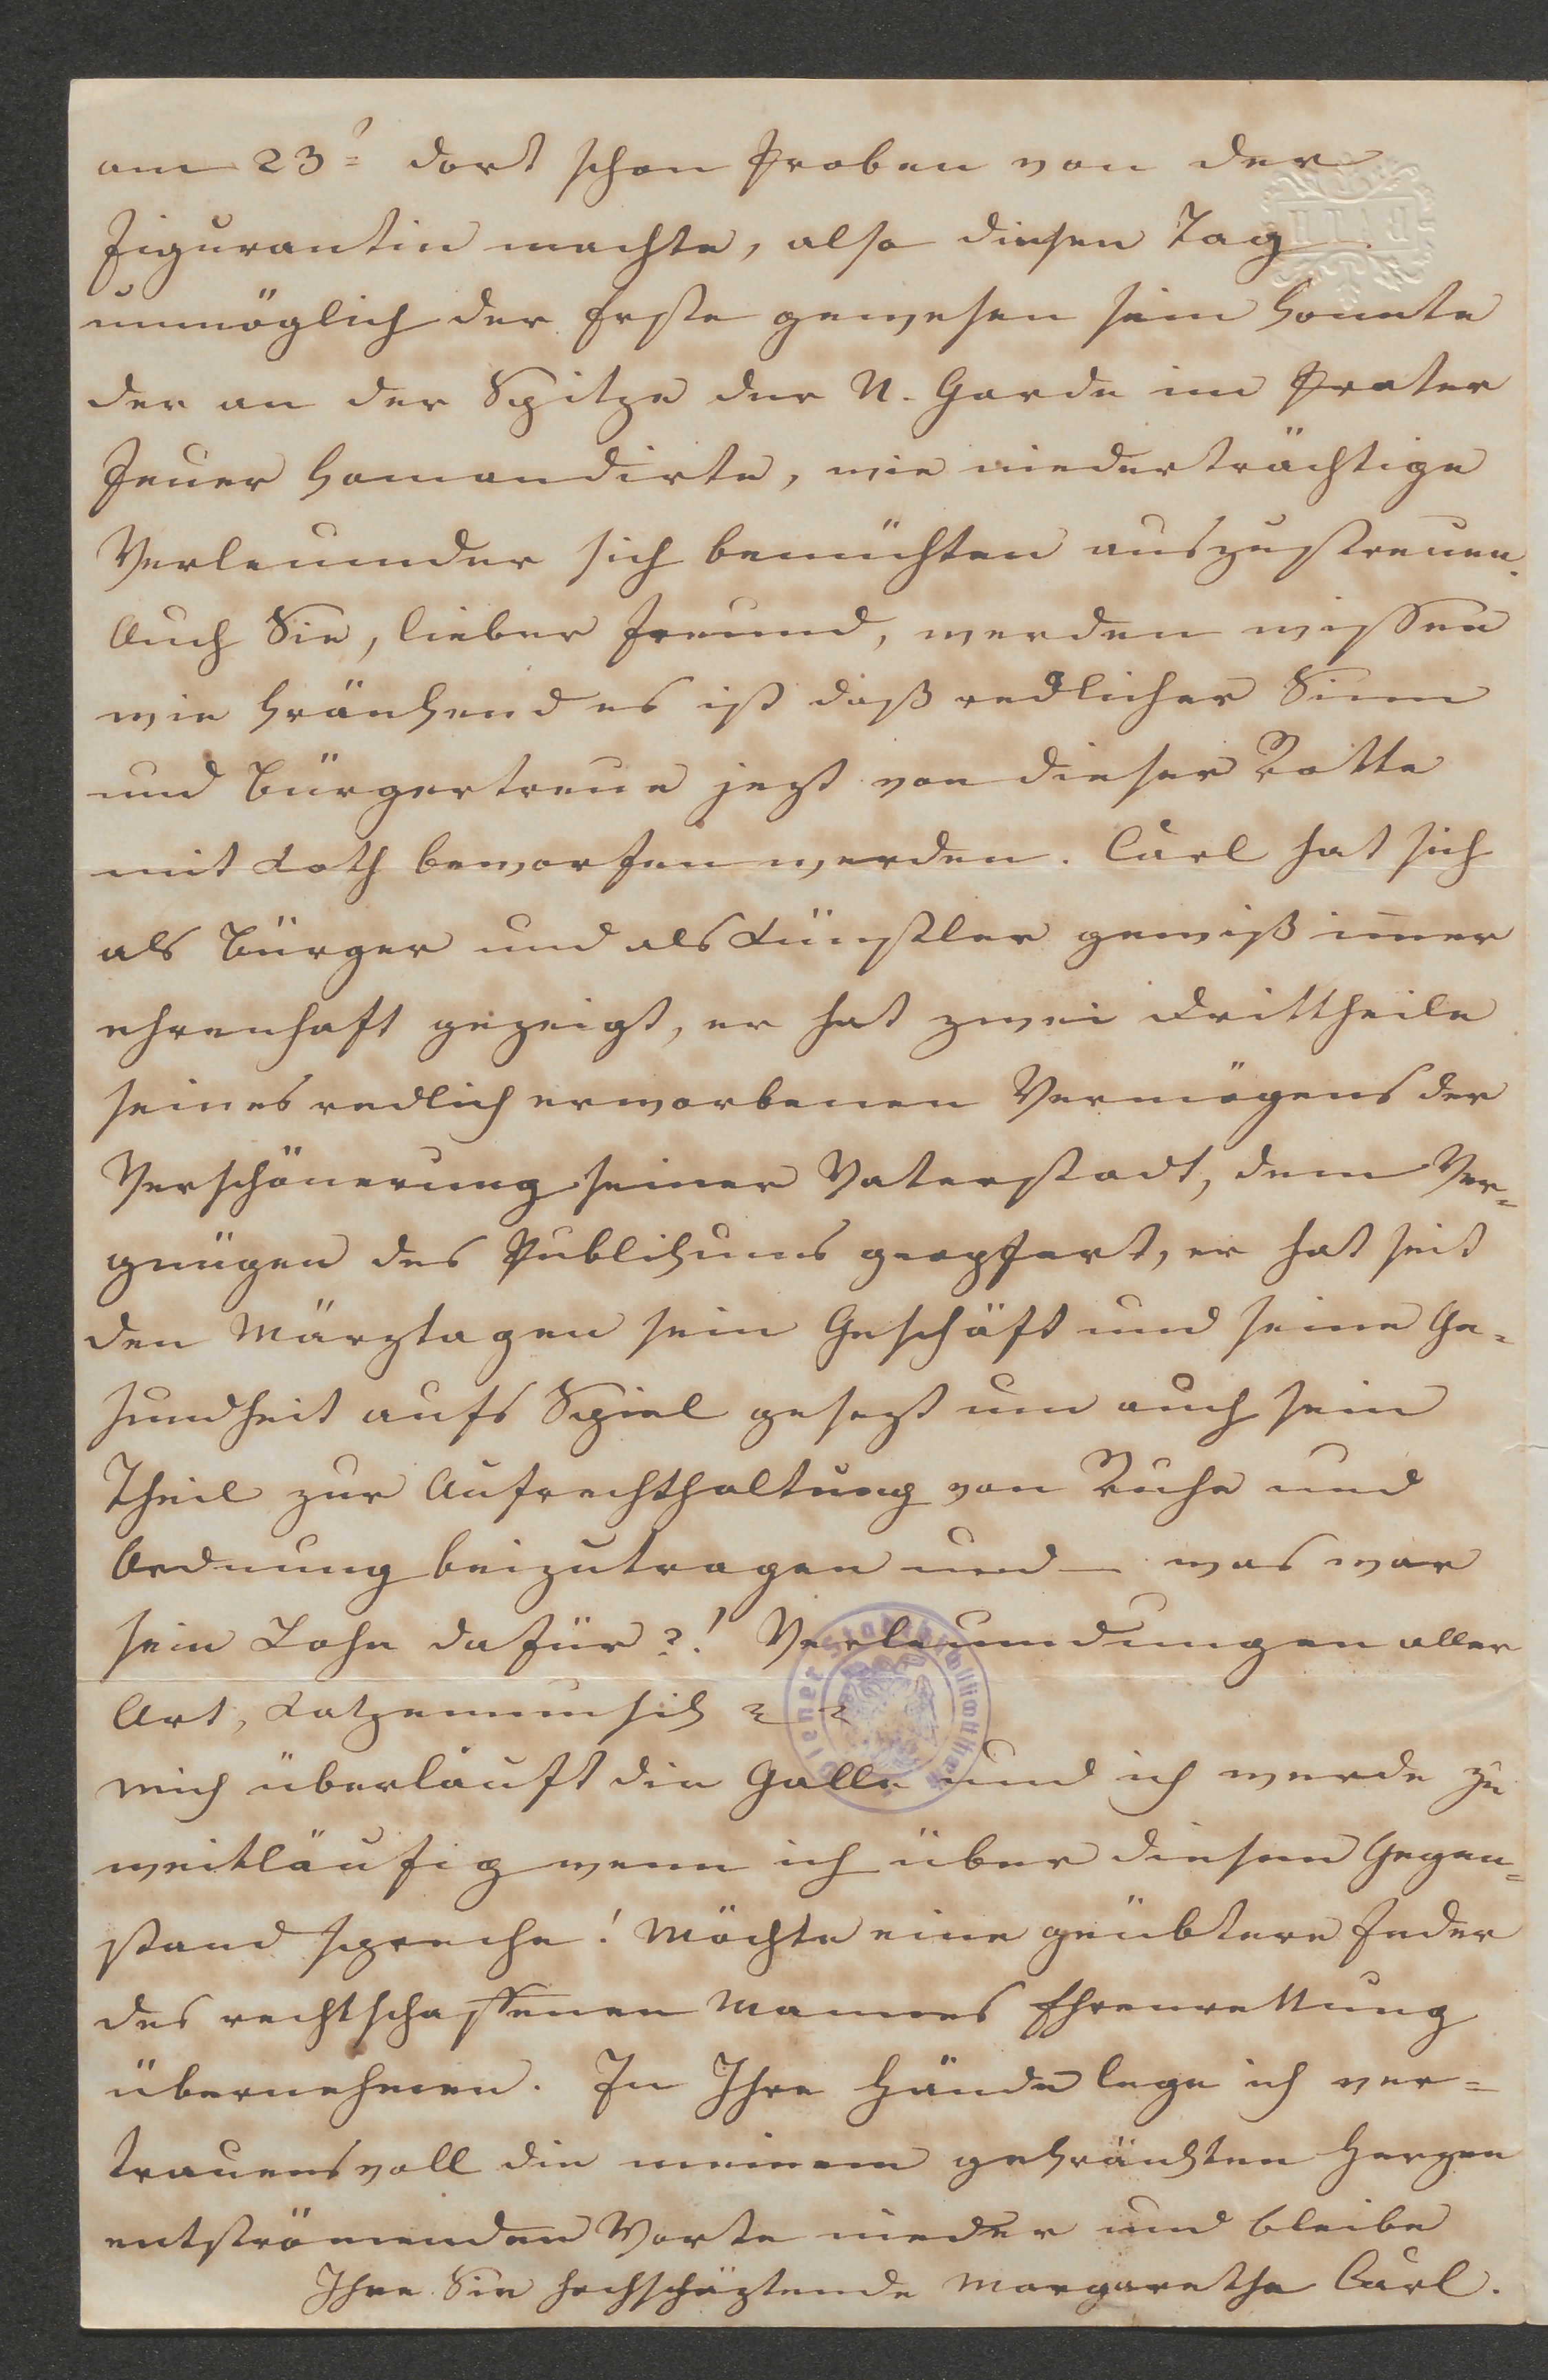 am 23t dort schon Proben von der
Figurantin machte, also diesen Tag
unmöglich der Erste gewesen sein konnte
der an der Spitze der N. Garde im Prater
Feuer komandirte, wie niederträchtige
Verleumder sich bemühten auszustreuen.
Auch Sie, lieber Freund, werden wissen
wie kränkend es ist daß redlicher Sinn
und Bürgertreue jezt von dieser Rotte
mit Koth beworfen werden. Carl hat sich
als Bürger und als Künstler gewiß im̄er
ehrenhaft gezeigt, er hat zwei Drittheile
seines redlich erworbenen Vermögens der
Verschönerung seiner Vaterstadt, dem Ver=
gnügen des Publikums geopfert, er hat seit
den Märztagen sein Geschäft und seine Ge=
sundheit aufs Spiel gesezt um auch sein
Theil zur Aufrechthaltung von Ruhe und
Ordnung beizutragen und — was war
sein Lohn dafür?! Verleumdungen aller
Art, Katzenmusik
mich überläuft die Galle und ich werde zu
weitläufig wenn ich über diesen Gegen=
stand spreche! Möchte eine geübtere Feder
des rechtschaffenen Mannes Ehrenrettung
übernehmen. In Ihre Hände lege ich ver=
trauensvoll die meinem gekränkten Herzen
entströmenden Worte nieder und bleibe
Ihre Sie hochschäztende Margarethe Carl.